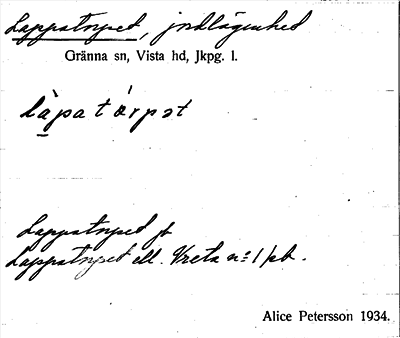 Lappatorpet, jordlägenhet
Gränna sn, Vista hd, Jkpg. l.
làpatórpət
Lappatorpet jb
Lappatorpet ell. Vreta nº 1 /kb.
Alice Petersson 1934.